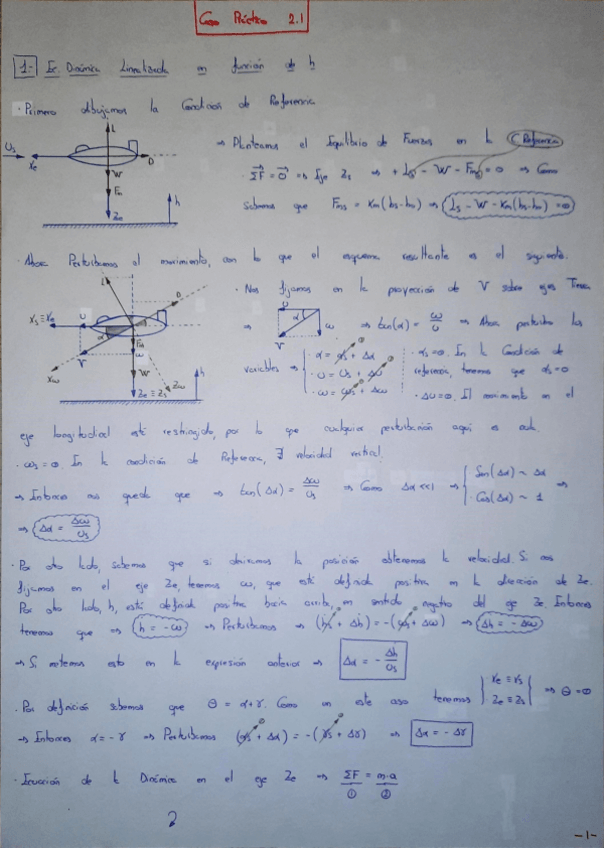 Caso Práctico 2.1
1- Ec. Dinámica Linealizada en función de h
· Primero dibujamos la Condición de Referencia
L
Us
Xe
D
W
Fm
Ze
h
⇒ Planteamos el Equilibrio de Fuerzas en la C. Referencia
· ΣF = 0 ⇒ Eje Zs ⇒ + Ls - W - Fms = 0 ⇒ Como
Sabemos que Fms = Km(hs-hm) ⇒ Ls - W - Km(hs-hm) = 0
· Ahora Perturbamos el movimiento, con lo que el esquema resultante es el siguiente.
L
D
Xs ≡ Xe
U
α
Fm
ω
V
W
h
Xω
Ze ≡ Zs
Zω
· Nos fijamos en la proyección de V sobre ejes Tierra
⇒ U α V ω ⇒ tan(α) = ω/U ⇒ Ahora perturbo las
variables ⇒
· α = αs + Δα
· U = Us + ΔU
· ω = ωs + Δω
· αs = 0. En la Condición de
referencia, tenemos que αs = 0
· ΔU = 0. El movimiento en el
eje longitudinal está restringido, por lo que cualquier perturbación aquí es nula.
· ωs = 0 En la condición de Referencia, ∄ velocidad vertical.
⇒ Entonces nos queda que ⇒ tan(Δα) = Δω/Us ⇒ Como Δα <<1 ⇒ { Sen(Δα) ~ Δα Cos(Δα) ~ 1 ⇒
⇒ Δα = Δω/Us
· Por otro lado, sabemos que si derivamos la posición obtenemos la velocidad. Si nos
fijamos en el eje Ze, tenemos ω, que está definida positiva en la dirección de Ze.
Por otro lado, h, está definida positiva hacia arriba, en sentido negativo del eje Ze. Entonces
tenemos que ⇒ ḣ = -ω ⇒ Perturbamos ⇒ (ḣs + Δḣ) = -(ωs + Δω) ⇒ Δḣ = -Δω
⇒ Si metemos esto en la expresión anterior ⇒ Δα = - Δḣ/Us
· Por definición sabemos que θ = α + γ. Como en este caso tenemos { Xe ≡ Xs Ze ≡ Zs } ⇒ θ = 0
⇒ Entonces α = -γ ⇒ Perturbamos (αs + Δα) = -(γs + Δγ) ⇒ Δα = -Δγ
· Ecuación de la Dinámica en el eje Ze ⇒ ΣF = m·a
① ②
-1-